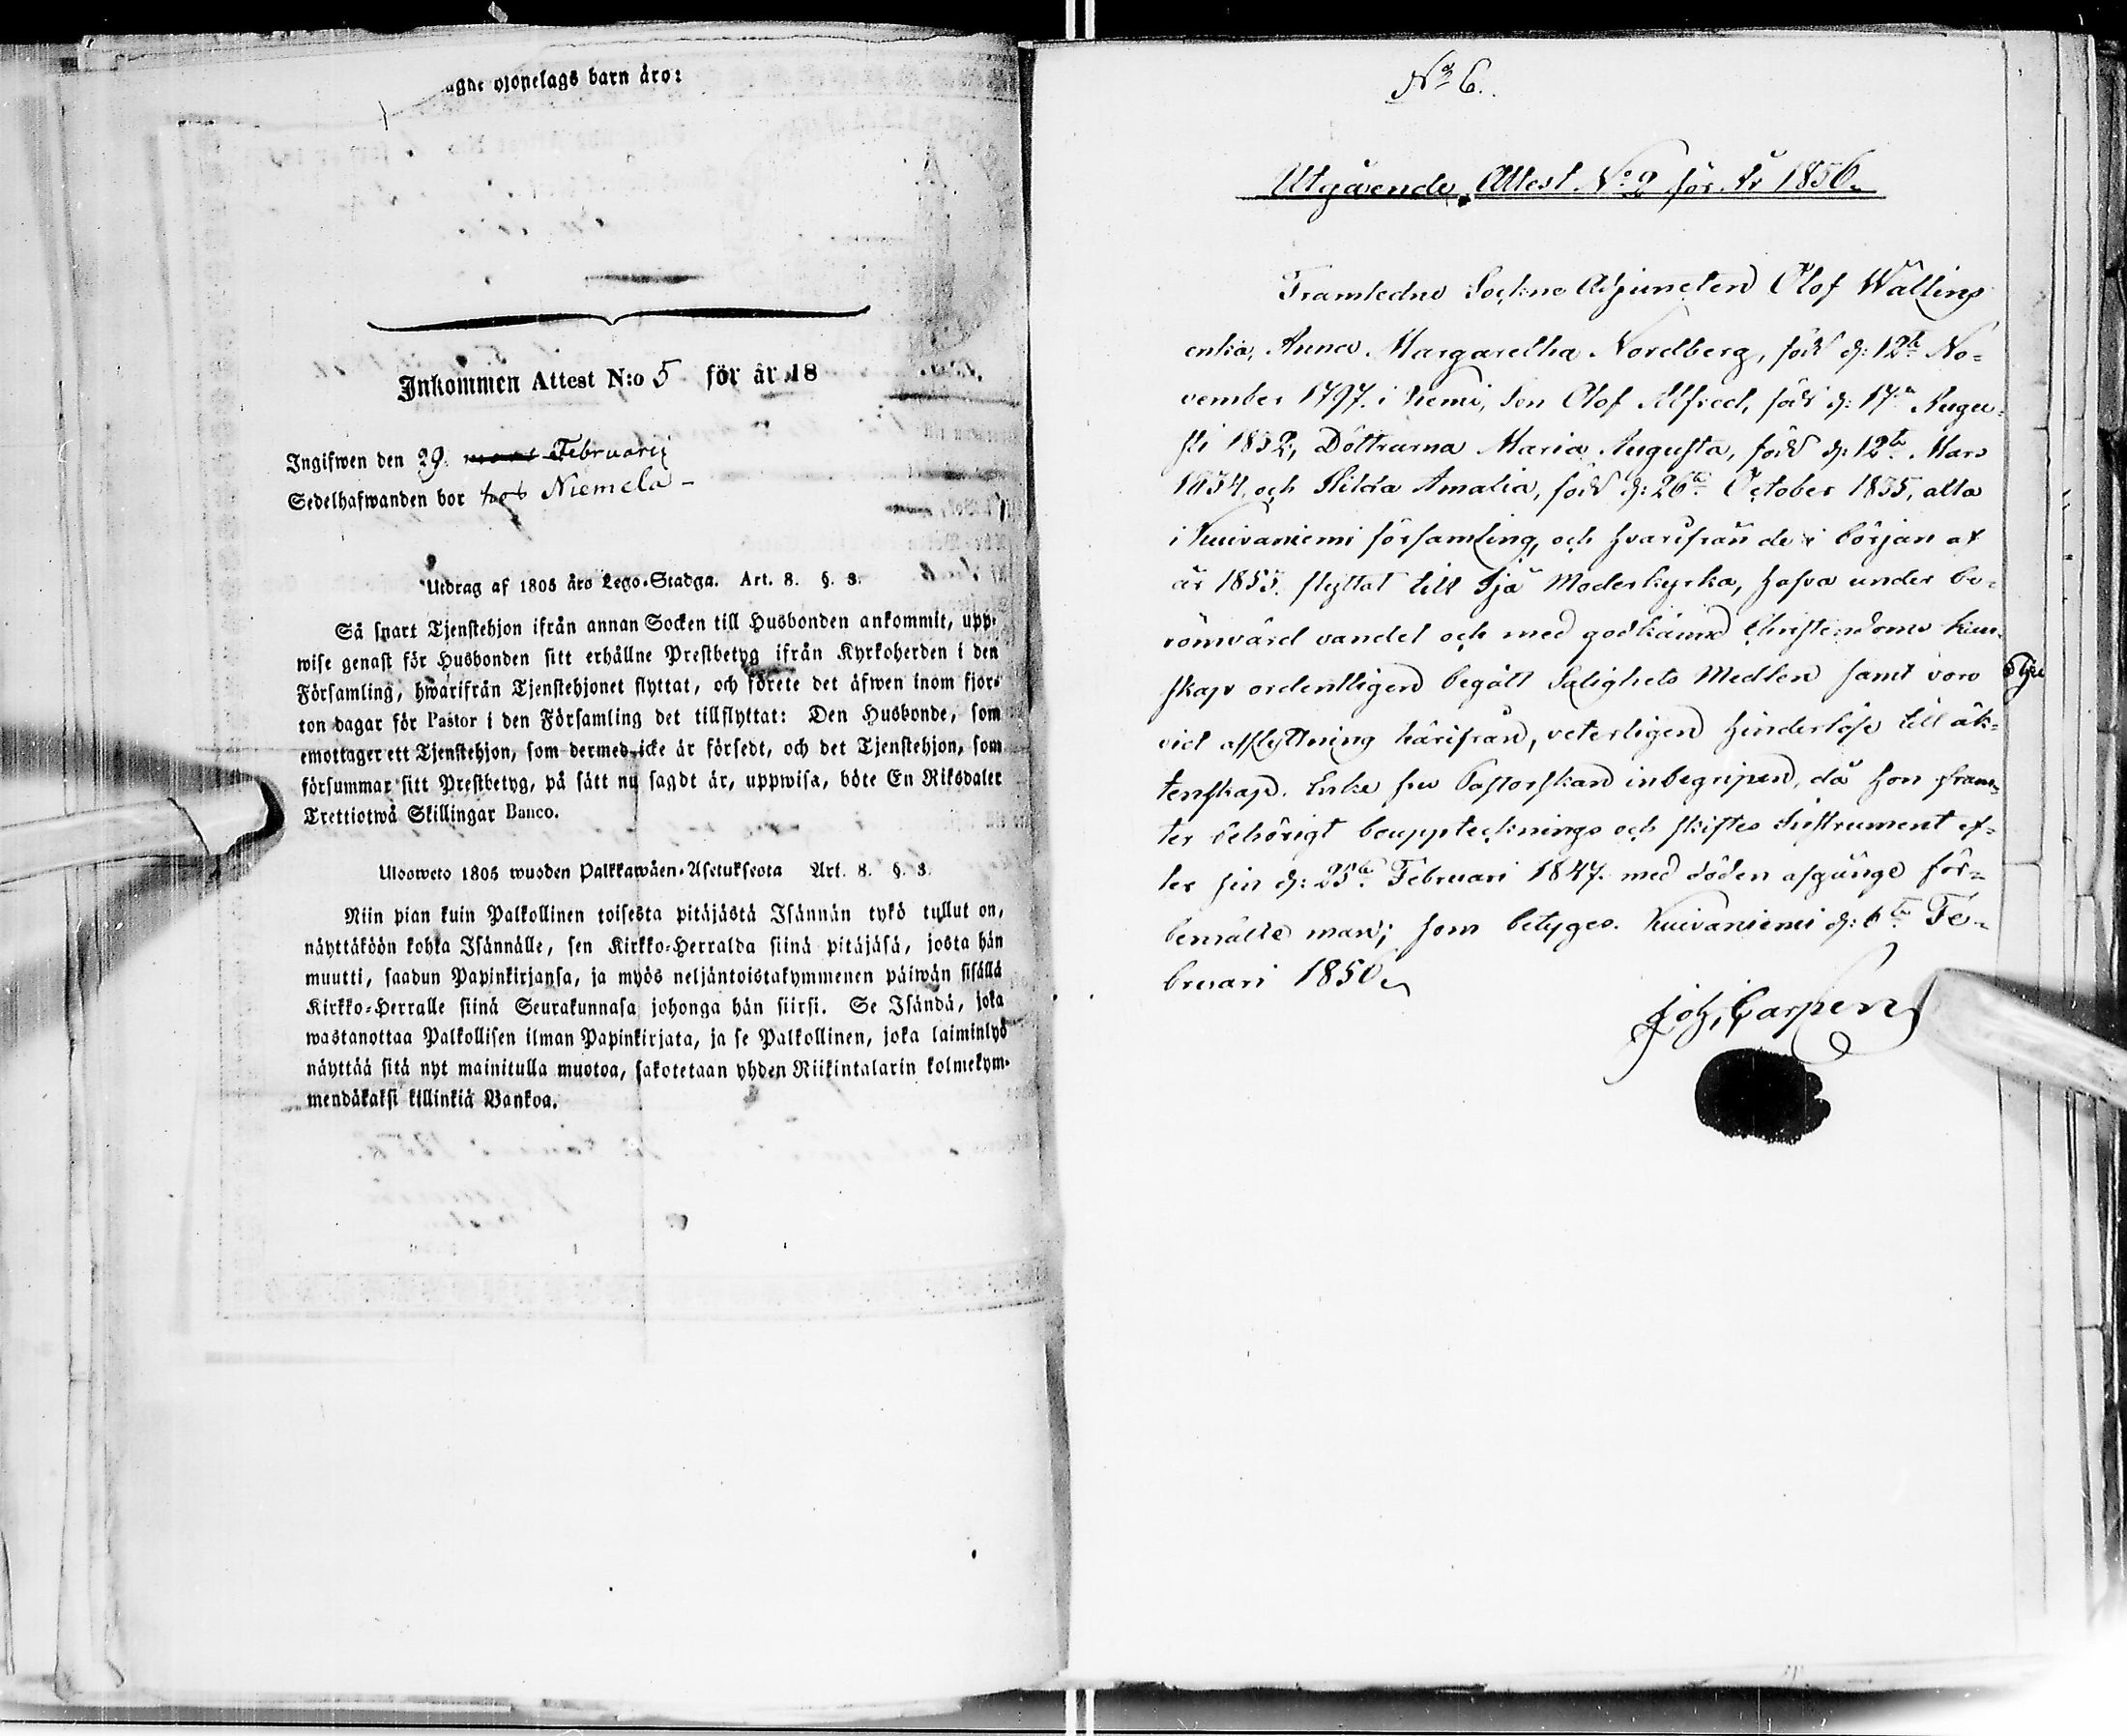 barn äro:
Inkommen Attest N:o 5 för år 18
Ingifwen den 29. Februarii
Sedelhafwanden bor hos Niemelä -
Utdrag af 1805 års Lego-Stadga. Art. 8. §. 8.
Så snart Tjenstehjon ifrån annan Socken till Husbonden ankommit, upp-
wise genast för Husbonden sitt erhållne Prestbetyg ifrån Kyrkoherden i den
Församling, hwarifrån Tjenstehjonet flyttat, och förete det äfwen inom fjor-
ton dagar för Pastor i den Församling det tillflyttat: Den Husbonde, som
emottager ett Tjenstehjon, som dermed icke är försedt, och det Tjenstehjon, som
försummar sitt Prestbetyg, på sätt nu sagdt är, uppwisa, böte En Riksdaler
Trettiotwå Skillingar Banco.
Ulosweto 1805 wuoden Palkkawäen-Asetuksesta Art. 8. §. 8.
Niin pian kuin Palkollinen toisesta pitäjästä Isännän tykö tullut on,
näyttäköön kohta Isännälle, sen Kirkko-Herralda siinä pitäjäsä, josta hän
muutti, saadun Papinkirjansa, ja myös neljäntoistakymmenen päiwän sisällä
Kirkko-Herralle siinä Seurakunnasa johonga hän siirsi. Se Isändä, joka
wastanottaa Palkollisen ilman Papinkirjata, ja se Palkollinen, joka laiminlyö
näyttää sitä nyt mainitulla muotoa, sakotetaan yhden Riikintalarin kolmekym-
mendäkaksi killinkiä Bankoa.
No 6.
Utgående Attest No 2 för År 1856.
Framledne Sockne Adjuncten Olof Wällings
enka, Anna Margaretha Nordberg, född d: 12te No-
vember 1797. i Kemi, Son Olof Alfred, född d: 17de Augu-
sti 1832, Döttrarna Maria Augusta, född d: 12te Mars
1834, och Hilda Amalia, född d: 26te October 1835, alla
i Kuivaniemi församling, och hvarifrån de i början af
år 1855. flyttat till Ijå Moderkyrka, hafva under be-
römvärd vandel och med godkänd Christendoms kun-
skap ordentligen begått Salighets Medlen samt voro
vid afflyttning härifrån, veterligen hinderlöse till äk-
tenskap. Enke fru Pastorskan inbegripen, då hon fram-
ter behörigt bouppteknings och skiftes Instrument ef-
ter sin d: 25te Februari 1847. med döden afgångne för-
bemälte man; som betyges. Kuivaniemi d: 6te Fe-
bruari 1856.
Joh, Carpen